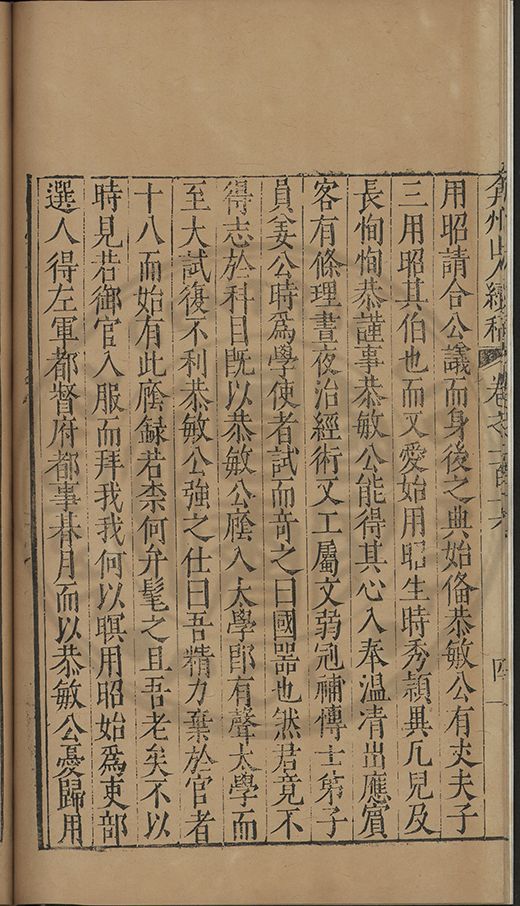 弇州山人續稿 卷之一百十六 四
用昭請合公議而身後之典始備恭敏公有丈夫子
三用昭其伯也而又愛始用昭生時秀穎異凡兒及
長恂恂恭謹事恭敏公能得其心入奉溫凊出應賓
客有條理晝夜治經術又工屬文弱冠補博士弟子
員姜公時爲學使者試而奇之曰國器也然君竟不
得志於科目既以恭敏公廕入太學卽有聲太學而
至大試復不利恭敏公強之仕曰吾精力棄於官者
十八而始有此廕録若柰何弁髦之且吾老矣不以
時見若御官入服而拜我我何以瞑用昭始爲吏部
選人得左軍都督府都事朞月而以恭敏公憂歸用